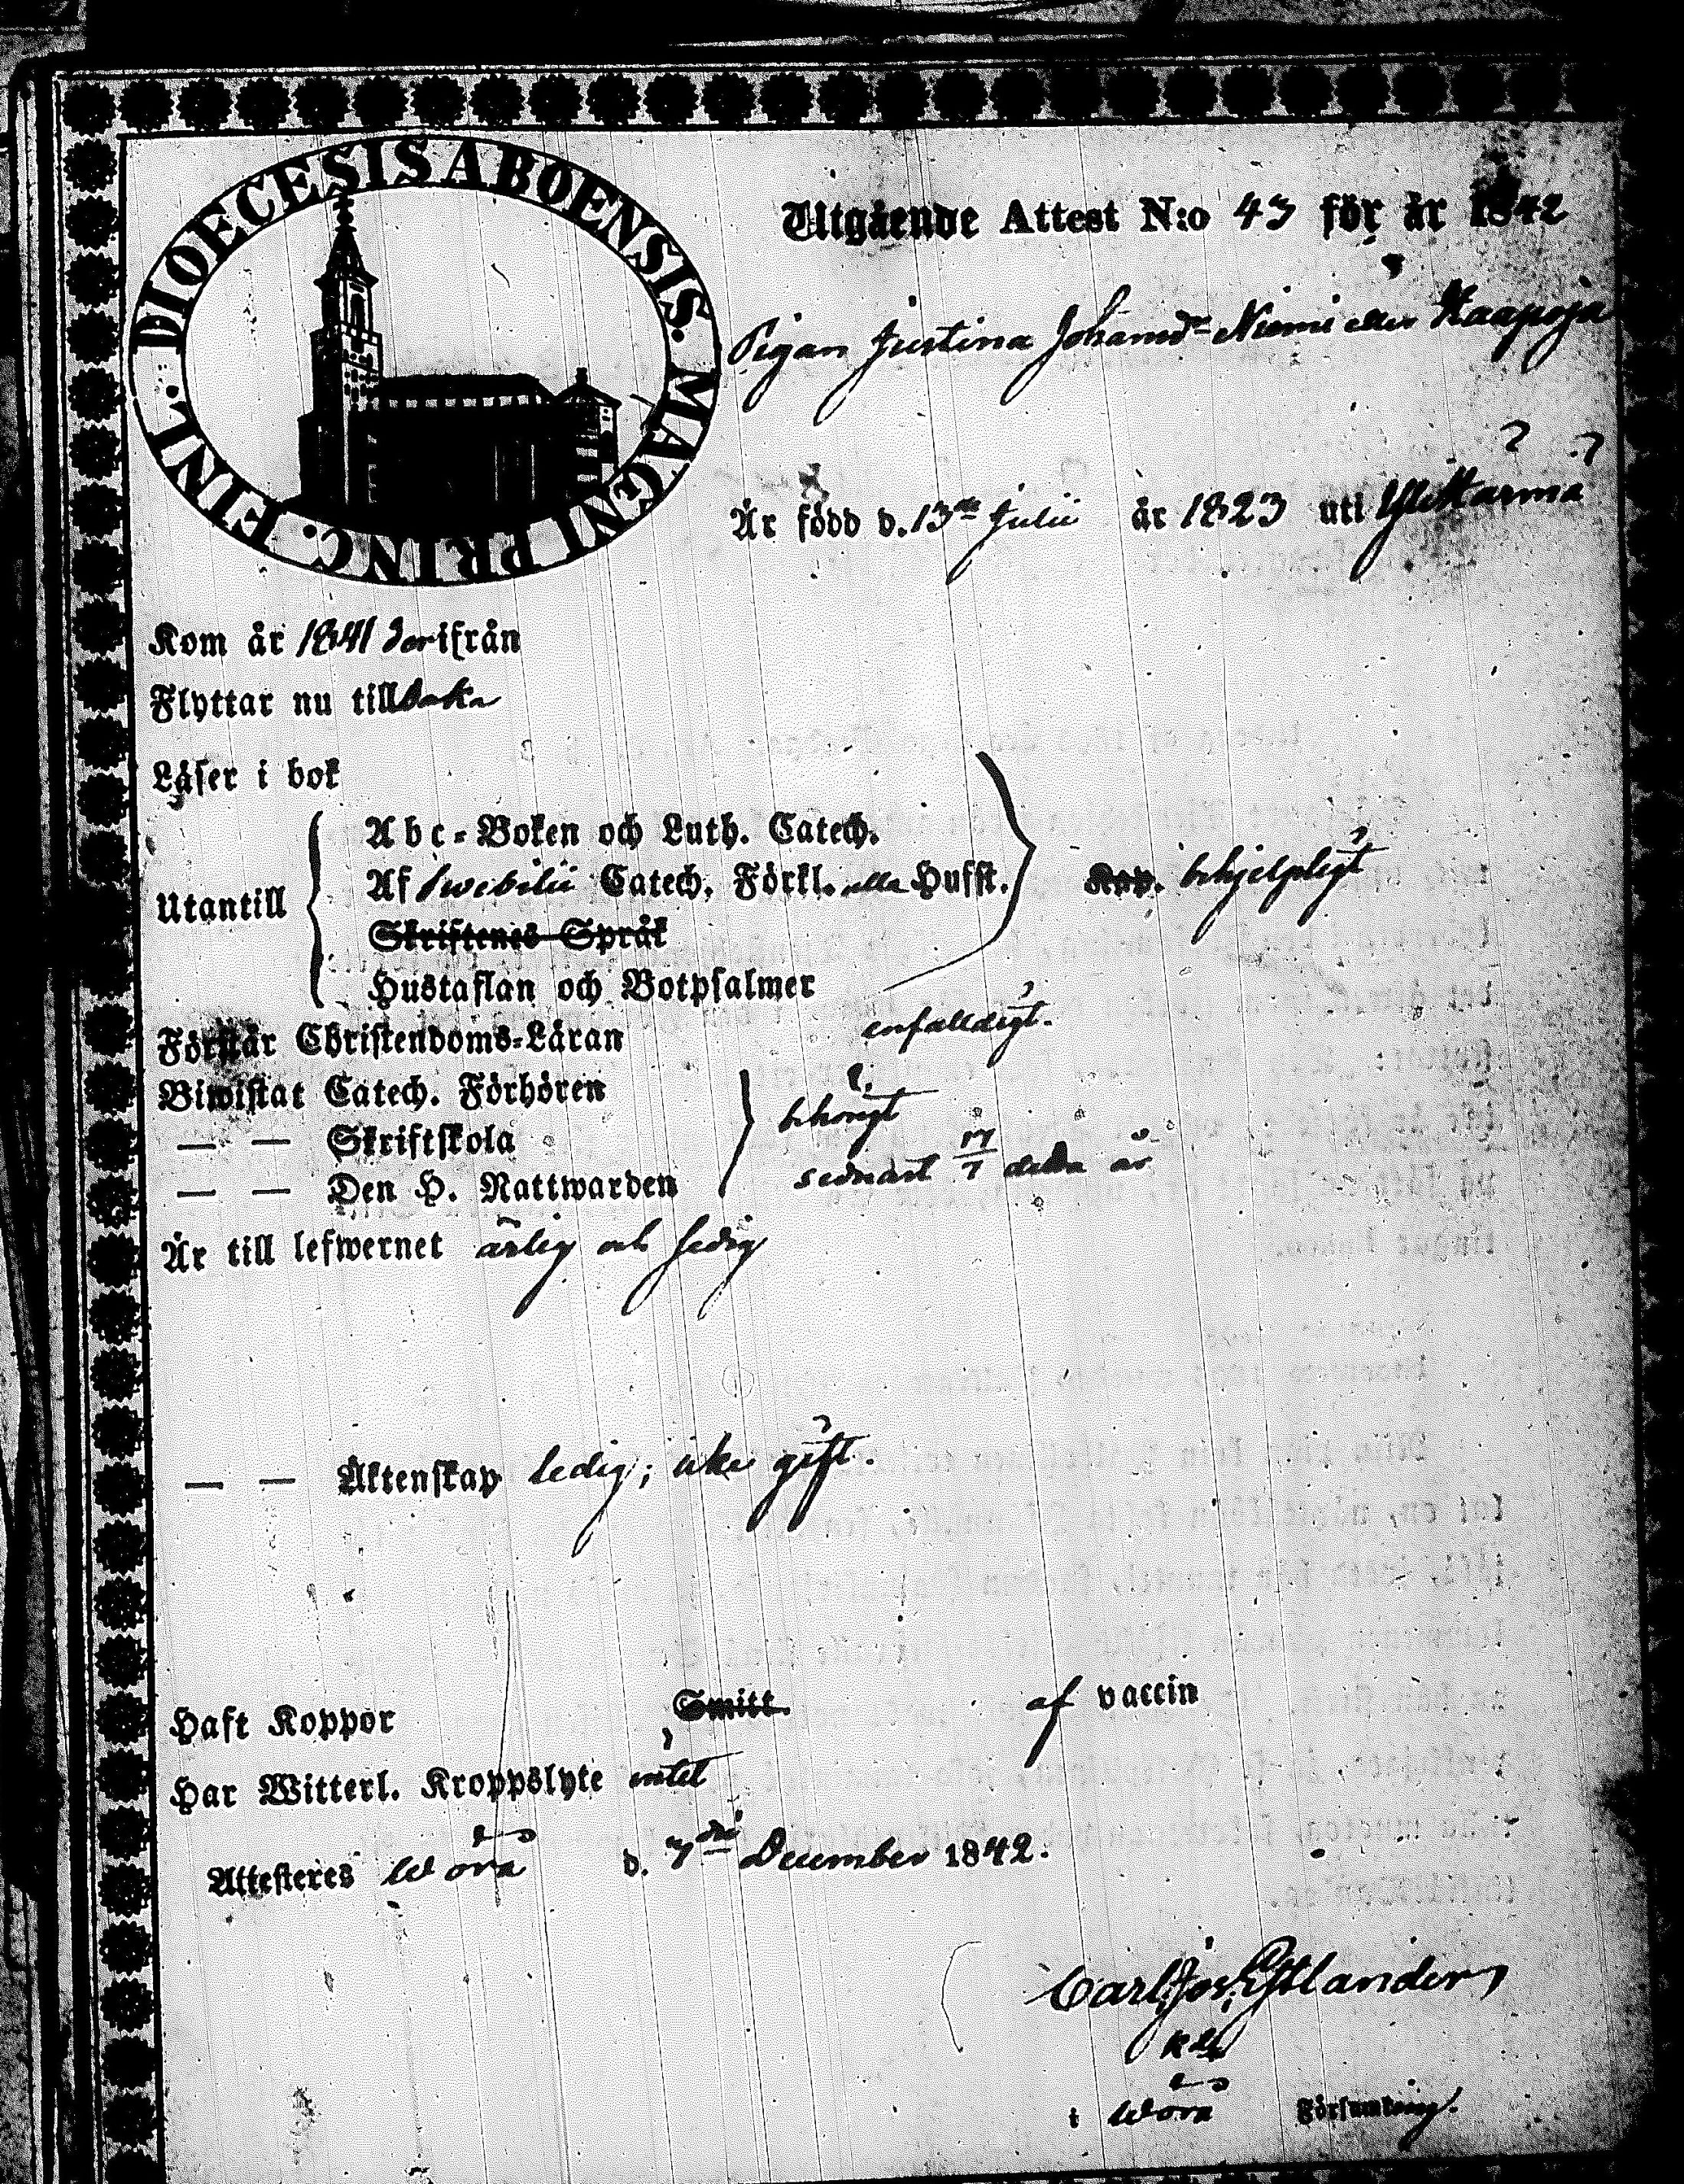 DIOECESIS ABOENSIS. MAGNI PRINC. FINL.
Utgående Attest N:o 43 för år 1842
Pigan Justina Johansd:r Niemi eller Kaapoja
Är född d. 13de Julii år 1823 uti Ylikärmä
Kom år 1841 derifrån
Flyttar nu tillbaka
Läser i bok
Utantill
Abc-Boken och Luth. Catech.
Af Swebilii Catech. Förkl. alla Hufst.
behjelpligt
Skriftenes Språk
Hustaflan och Botpsalmer
Förstår Christendoms-Läran enfalldigt.
Biwistat Catech. Förhören
— — Skriftskola behörigt
— — Den H. Nattwarden sednast 17/7 detta år
Är till lefwernet ärlig och sedig
— — Äktenskap ledig; icke gift.
Haft Koppor Smitt. af vaccin
Har Witterl. Kroppslyte intet
Attesteres Wörå d. 7de December 1842.
Carl Jos. Estlander
i Wörå Församling.